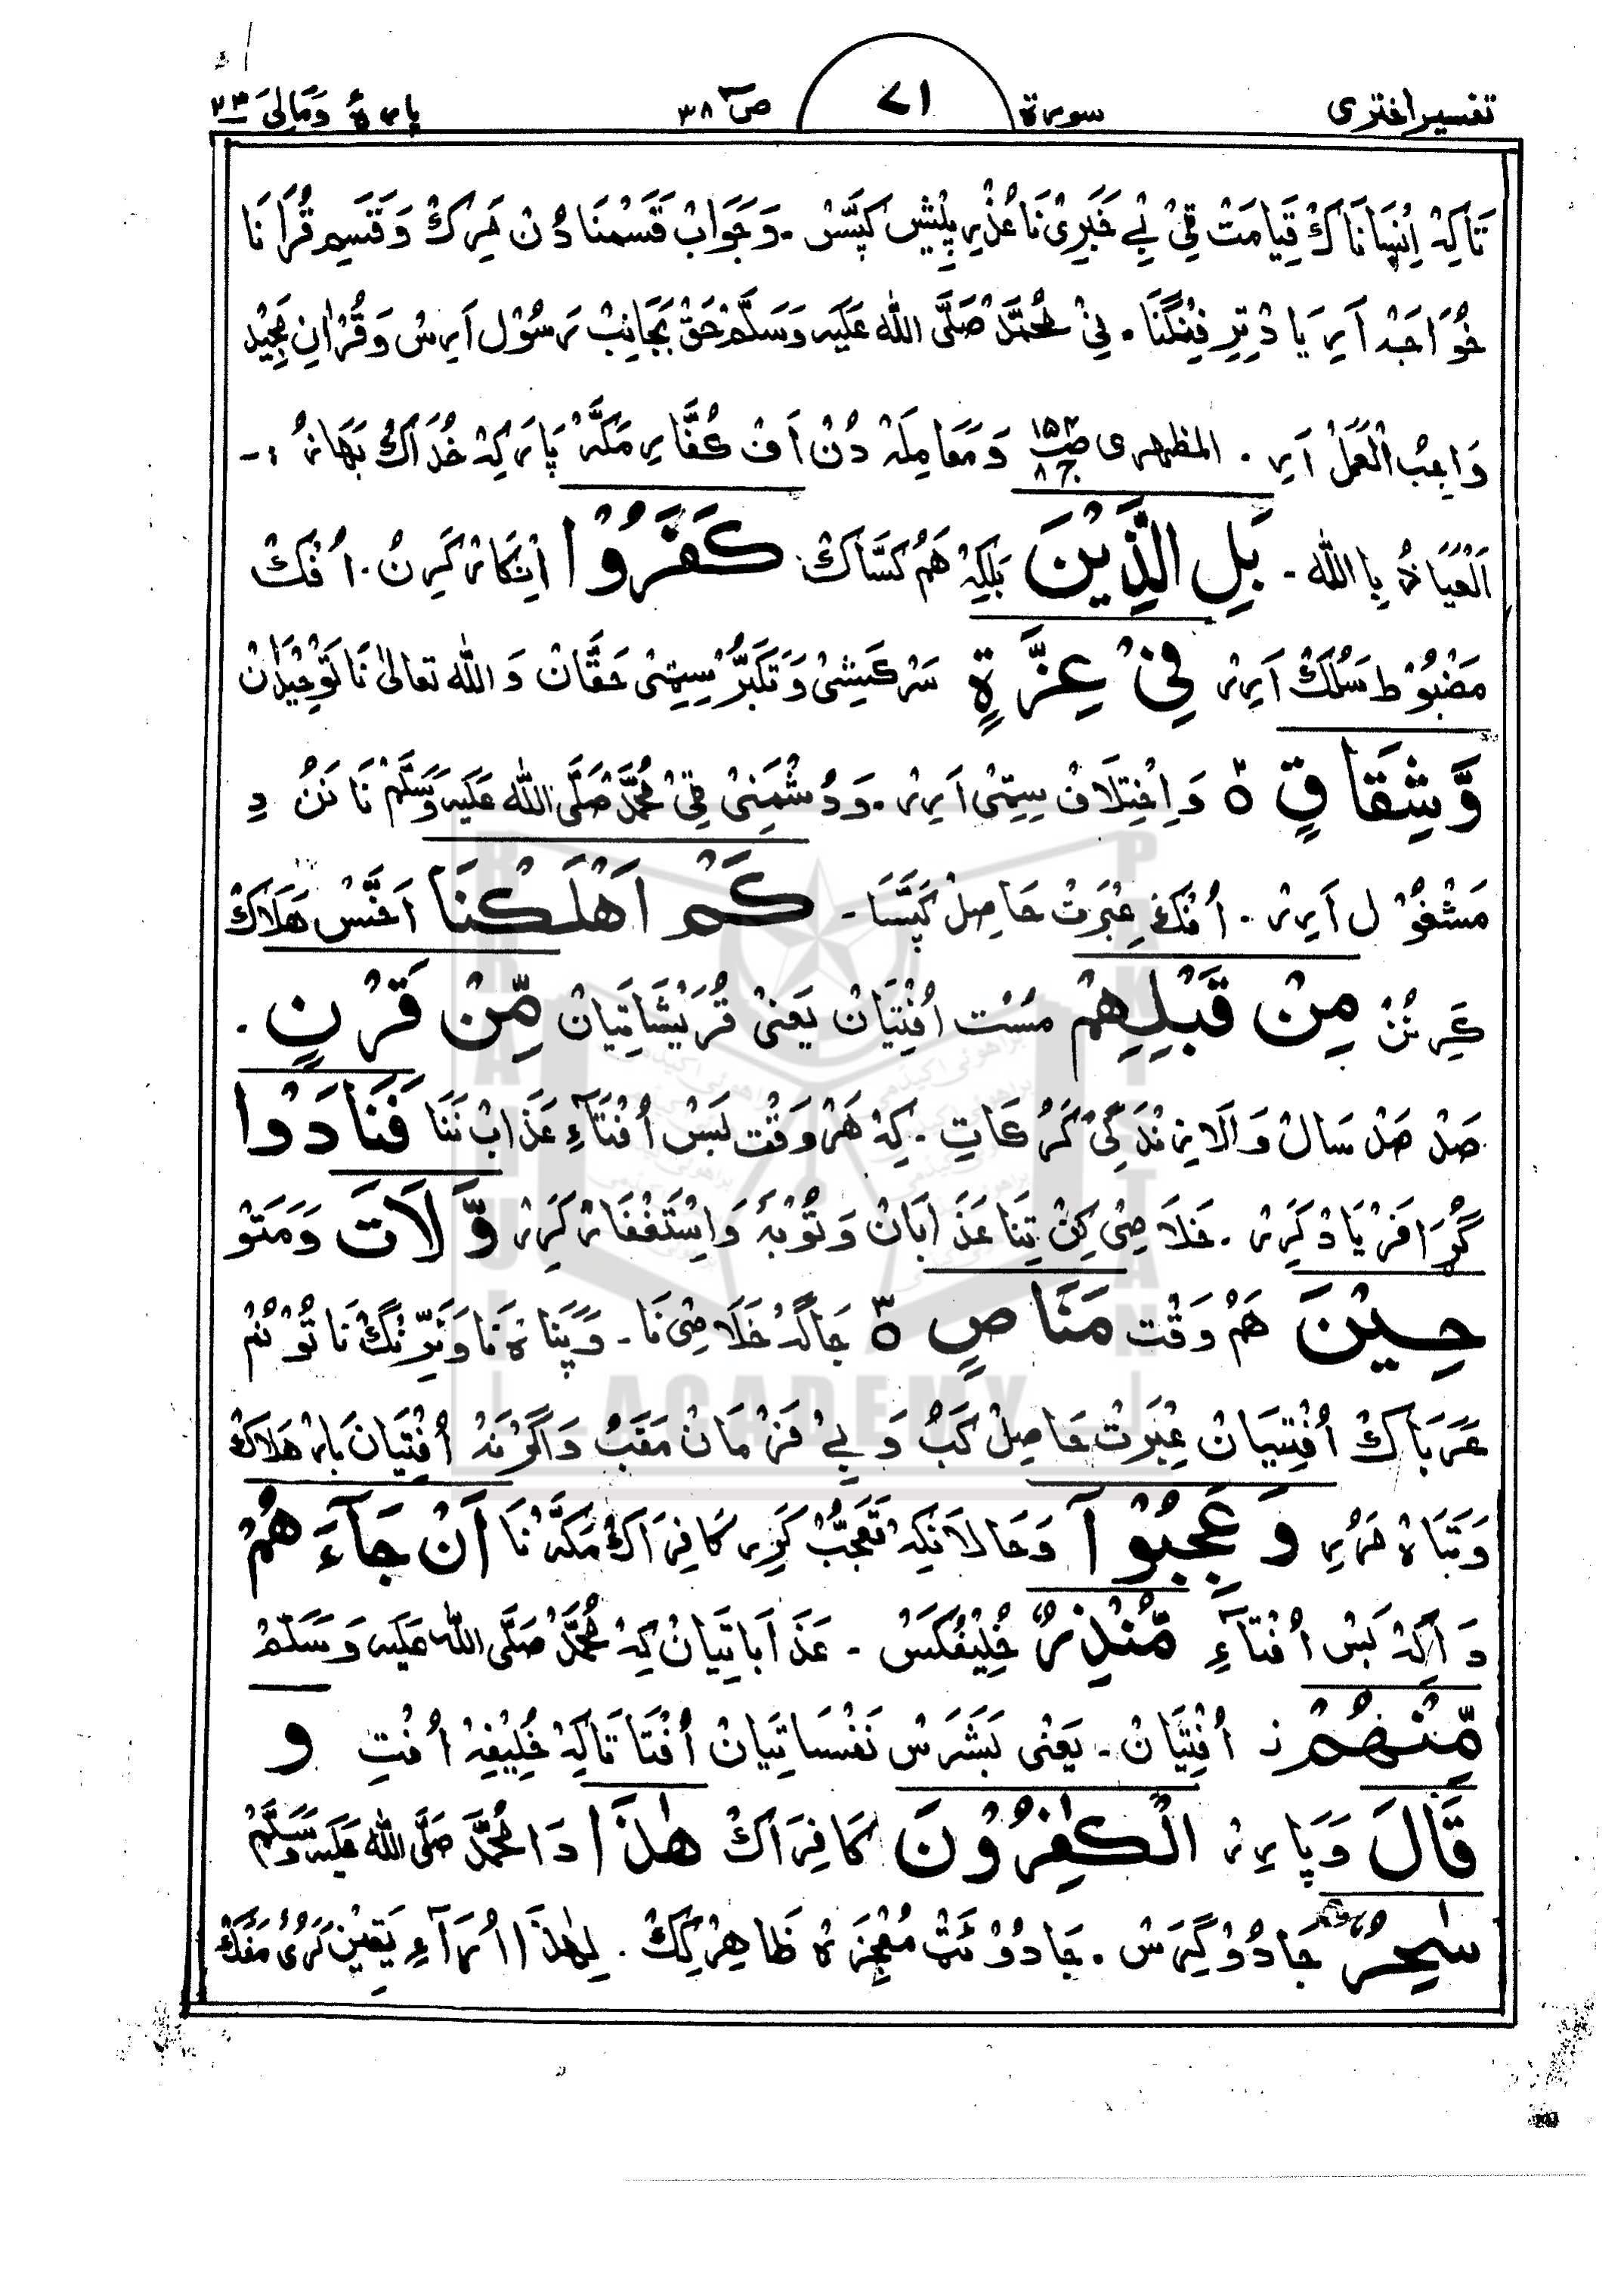 تفسیر اختری سورة ۷۱ صٓ ۳۸ پارهٔ وَمَالِیَ ۲۳
تَاکِہْ اِنْسَانَاکْ قِیَامَتْ ٹِیْ بے خَبَرِیْ نَا عُذْرِ پِیْش کَپَّسْ ۔ وَجَوَابْ قَسْمْنَا دُنْ مَرِکْ وَقَسِمِ قُرْاٰنَا
خُوَاجَہْ اَرِ یَادْتِرِفِنْگْنَا ۔ نِیْ مُحَمَّدْ صَلَّی اللّٰه عَلَیه وَسَلَّمْ حَقْ بَجَانِبْ رَسُوْل اَرِسْ وَقُرْاٰنِ مَجِیْد
وَاجِبُ الْعَمَلْ اَرِ ۔ المظہری ص۱۵۴ ج۸ وَمَعَامِلَہْ دُنْ اَفْ کُفَّارِ مَکَّہْ پَارَ کِہْ خُدَاکُ بَهَازُ :۔
اَلْعِیَاذُ بِاللّٰه ۔ بَلِ الَّذِیْنَ بَلکِہْ هَمْ کَسَّاکْ کَفَرُوْا اِنْکَارْ کَرِنُ ۔ اُفْکْ
مَضْبُوْط سَلُکْ اَرِرْ فِیْ عِزَّةٍ سَرْکَشِیْ وَتَکَبُّرْ سِیْٹِیْ حَقَّانْ وَاللّٰه تعالیٰ نَا تَوْحِیْدَانْ
وَّشِقَاقٍ ٥ وَاِخْتِلَافْ سِیْٹِیْ اَرِرْ ۔ وَدُشْمَنِیْ ٹِیْ مُحَمَّدْ صَلَّی اللّٰه عَلَیه وَسَلَّمْ نَا نَنُ دِ
مَشْغُوْل اَرِرْ ۔ اُفْکْ عِبْرَتْ حَاصِلْ کَپَّسَا ۔ کَمْ اَهْلَکْنَا اَخَسْ هَلَاکْ
کَرِنُنْ مِنْ قَبْلِهِمْ مُسْت اُفْتِیَانْ یَعْنِیْ قُرَیْشَاتِیَانْ مِّنْ قَرْنٍ ۔
صَدْ صَدْ سَالْ وَالَا زِنْدَگِیْ کَرُکَاتِ ۔ کِہْ هَرْوَقْت بَسْ اُفْتَآءِ عَذَابْ نَنَا فَنَادَوْا
گُڑَا فَرْیَادْ کَرِرْ ۔ خَلَاصِیْ کِنْ تِنَا عَذَابَانْ وَتَوْبَهْ وَاِسْتَغْفَارْ کَرِرْ وَّلَاتَ وَمَتَوْ
حِیْنَ هَمْ وَقْت مَنَاصٍ ٥ جَاگَہْ خَلَاصِیْ نَا ۔ وَپَنَاه نَا وَنَرِّنْگْ نَا تُوْنُمْ
عَرَبَاکْ اُفْتِیَانْ عِبْرَتْ حَاصِلْ کَبُ وَبےْ فَرْمَانْ مَفَبُ وَاگَرْنَہْ اُفْتِیَانْ بَارْ هَلَاکْ
وَتَبَاهْ مَرُرِ وَعَجِبُوْآ وَحَالَانکِہْ تَعَجُّبْ کَرِرْ کَافِرَاکْ مَکَّہْ نَا اَنْ جَآءَهُمْ
دَاکِہْ بَسْ اُفْتَآءِ مُّنْذِرٌ خُلِیْفُکَسْ ۔ عَذَابَاتِیَانْ کِہْ مُحَمَّدْ صَلَّی اللّٰه عَلَیه وَسَلَّمْ
مِّنْهُمْ ز اُفْتِیَانْ ۔ یَعْنِیْ بَشَرَسْ نَفْسَاتِیَانْ اُفْتَا تَاکِہْ خُلِیْفِہْ اُفْتِ وَ
قَالَ وَپَارِرْ الْکٰفِرُوْنَ کَافِرَاکْ هٰذَا دَا مُحَمَّدْ صَلَّی اللّٰه عَلَیه وَسَلَّمْ
سٰحِرٌ جَادُوْگَرَسْ ۔ جَادُوْ ئَتْ مُعْجِزَهْ ظَاهِرْ کِکْ ۔ لِهٰذَا اُرَآءِ یَقِیْن کَرُیْ مَفَّکْ
BRAHUI
ACADEMY
PAKISTAN